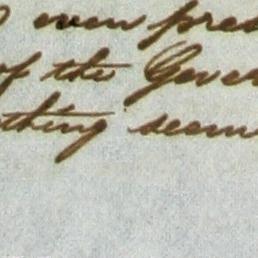 even pres
of the Gover
thing seem